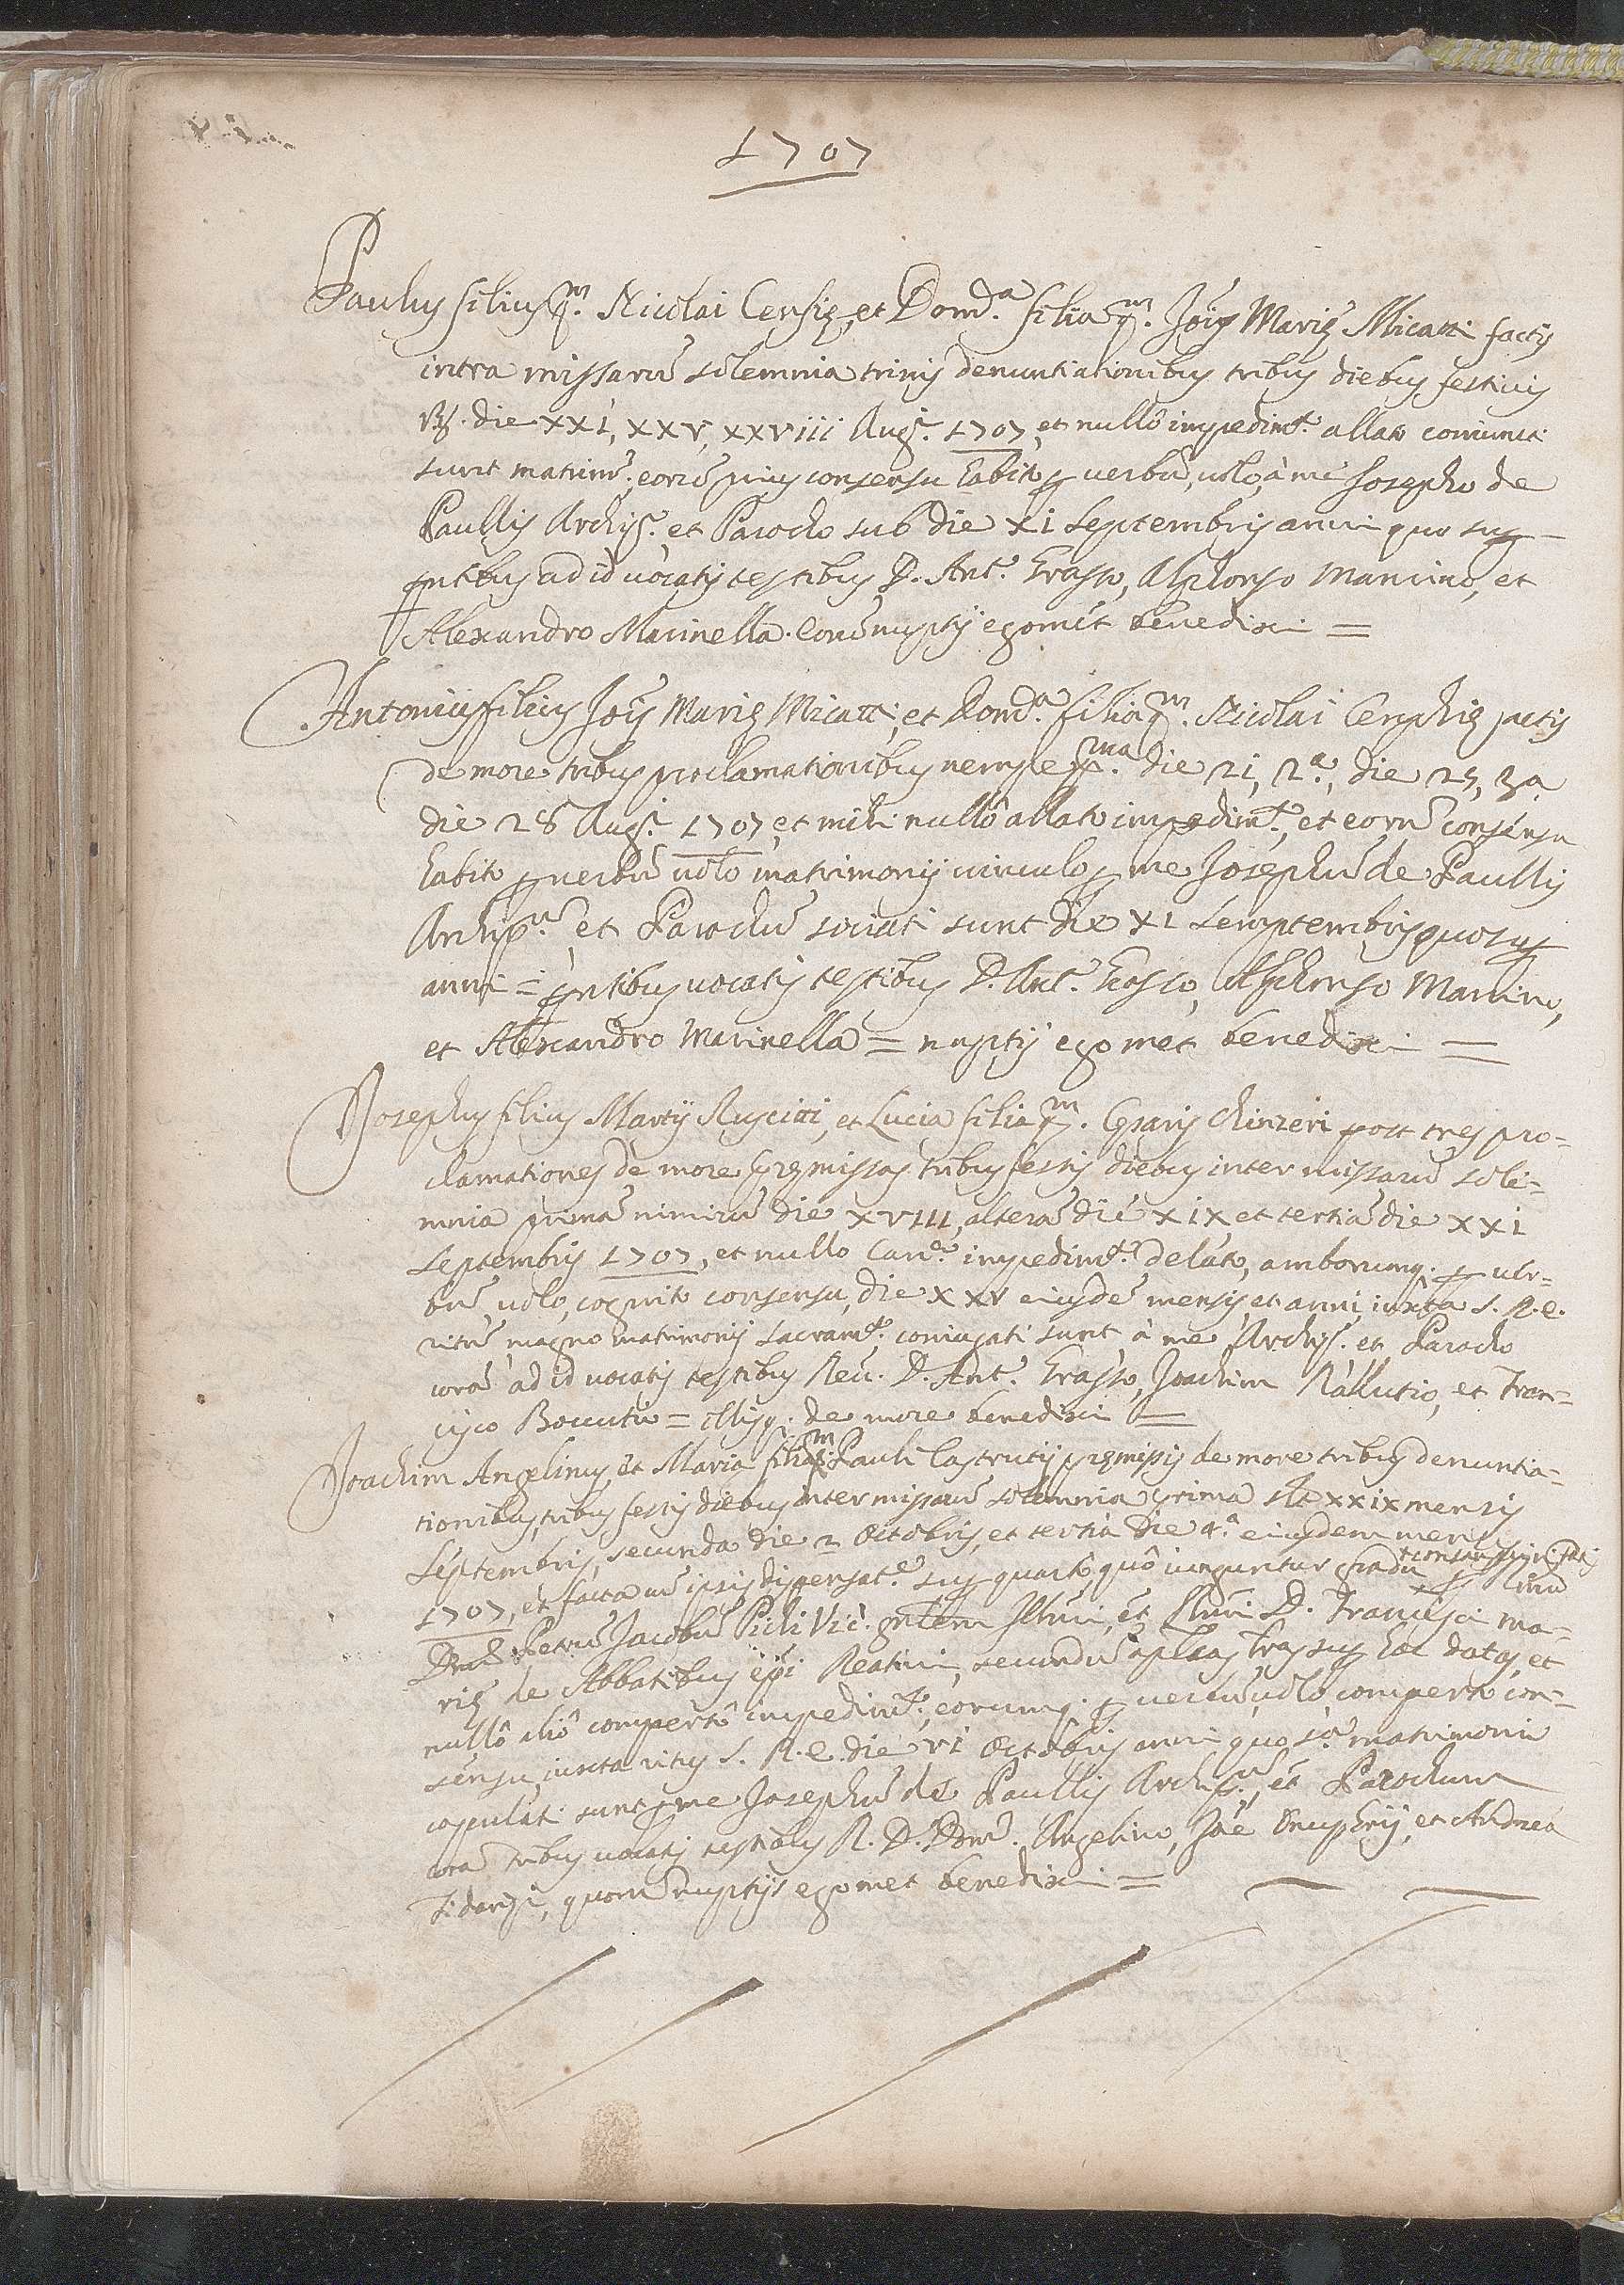 1707
Paulus filius qm. Nicolai Cersię, et Domca. filia qm. Jois Marię Micatti factis
intra missarũ solemnia trinis denuntiationibus tribus diebus festiuis
vz. die XXI, XXV, XXVIII Augti. 1707, et nullô impedimto. allato coniuncti
sunt matrimo. eorũ prius consensu habito p verbũ, volo, à me Josepho de
Paullis Archipr. et Parocho sub die XI Septembris anni quo sup
pntibus ad id vocatis testibus D. Anto. Grasso, Alphonso Mancino, et
Alexandro Marinella. Eorũ nuptijs egomet benedixi =
Antonius filius Jois Marię Micatti, et Domca. filia qm. Nicolai Cerphię factis
de more tribus proclamationibus nempe pma. die 21, 2a., die 25, 3a
die 28 Augti. 1707, et mihi nullô allato impedimto., et eorũ consensu
habito p verbũ volo matrimonij vinculo p me Josephũ de Paullis
Archiprũ. et Parochũ sociati sunt die XI Semptembris quo sup
anni = pntibus vocatis testibus D. Anto. Grasso, Alphonso Mancino,
et Alexandro Marinella = nuptijs egomet benedixi =
Josephus filius Martij Ruscitti, et Lucia filia qm. Cęsaris Chinzeri post tres pro-
clamationes de more pręmissas tribus festis diebus inter missarũ sole-
mnia primã nimirũ die XVIII, alterã die XIX et tertiã die XXI
Septembris 1707, et nullo Canco. impedimto. delato, amborumq. p ver-
bũ volo, cognito consensu, die XXV eiusdẽ mensis et anni, iuxta S. R. E.
ritũ magno matrimonij sacramto. coniugati sunt à me Archipr. et Parocho
corã ad id vocatis testibus Reu. D. Anto. Grasso, Joachim Rallutio, et Fran-
cisco Boccutio = illisq. de more benedixi =
Joachim Angelinus, et Maria filia qm. Pauli Castrutij pręmissis de more tribus denuntia-
tionibus, tribus festis diebus inter missarũ solemnia prima die XXIX mensis
Septembris, secunda die 2 Octobris, et tertia die 4.a eiusdem mensis
1707, et facta cũ ipsis dispensate. sup quarto quô iunguntur gradu
Petrũ Jacobũ Pichi Vic. gnlem Illmi, et Rmi D. Francisci Ma-
rię de Abbatibus Epi Reatini, secundũ aplicas lras sup hoc datas, et
nullô aliô compertô impedimto., eorumq. p verbũ, volo, comperto con-
sensu, iuxta ritus S. R. E. die VI Octobris anni quo sa. matrimonio
copulati sunt p me Josephũ de Paullis Archiprũ., et Parochum
corã tribus vocatis testibus R. D. Domco. Angelino, Joẽ Onuphrij, et Andrea
quorũ nuptijs egomet benedixi =